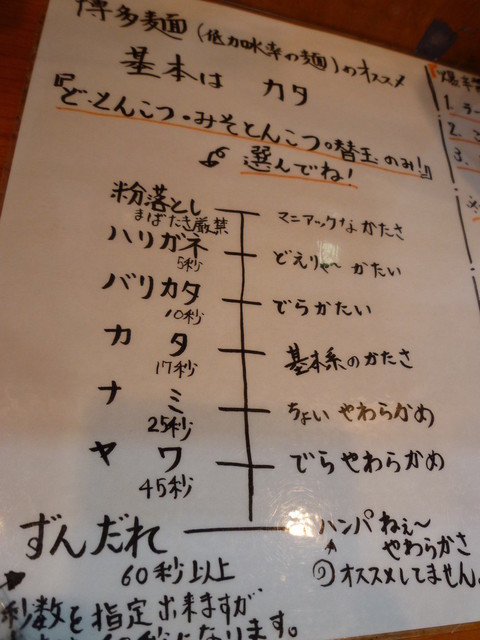 博多麺(低加水率の麺)のオススメ
基本は カタ
『ど・とんこつ・みそとんこつ。替玉のみ!!』
選んでね!
粉落とし マニアックなかたさ
まばたき厳禁
ハリガネ どえりゃ〜かたい
5秒
バリカタ でらかたい
10秒
カタ 基本系のかたさ
17秒
ナミ ちょいやわらかめ
25秒
ヤワ でらやわらかめ
45秒
ずんだれ ハンパねぇ〜やわらかさ
60秒以上 オススメしてません。
秒数を指定出来ますが
になります。
1. ラー
2.
3.